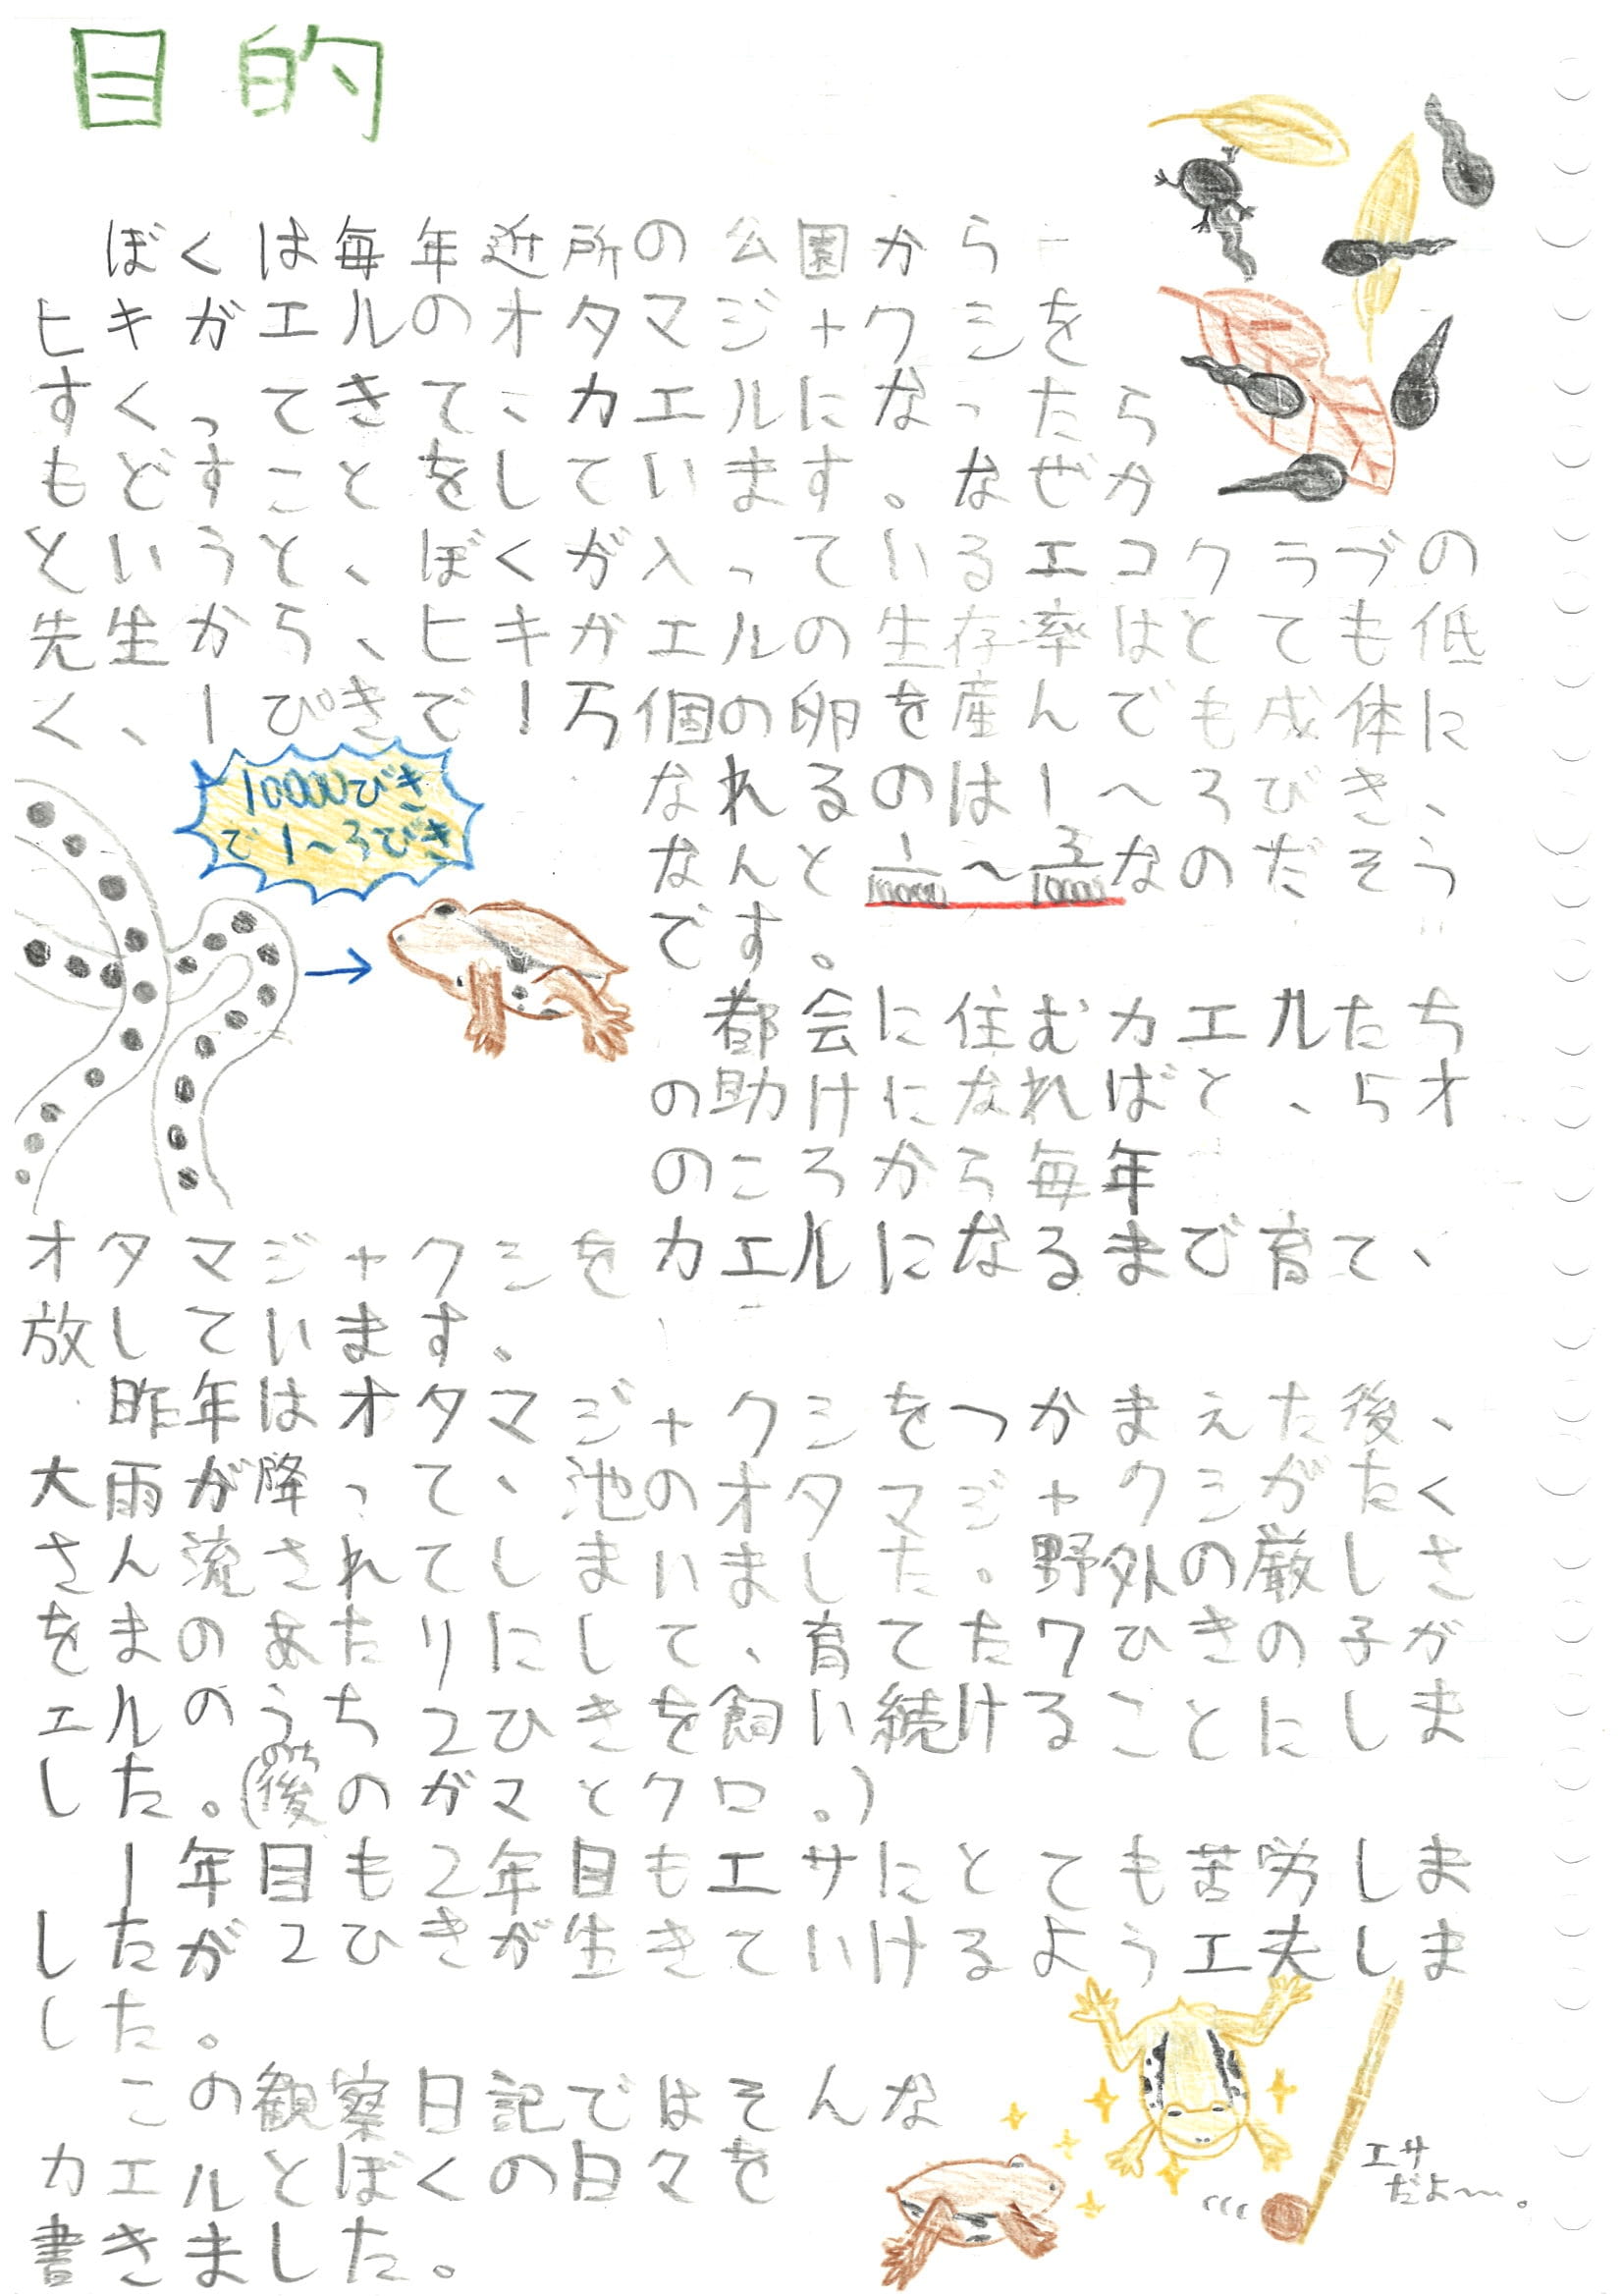 目的
ぼくは毎年近所の公園から
ヒキガエルのオタマジャクシを
すくってきて、カエルになったら
もどすことをしています。なぜか
というと、ぼくが入っているエコクラブの
先生から、ヒキガエルの生存率はとても低
く、1ぴきで1万個の卵を産んでも成体に
なれるのは1〜3びき、
なんと1/10000〜3/10000なのだそう
です。
10000びき
で1〜3びき
都会に住むカエルたち
の助けになればと、5才
のころから毎年
オタマジャクシをカエルになるまで育て、
放しています。
昨年はオタマジャクシをつかまえた後、
大雨が降って、池のオタマジャクシがたく
さん流されてしまいました。野外の厳しさ
をまのあたりにして、育てた7ひきの子ガ
エルのうち2ひきを飼い続けることにしま
した。(後のガマとクロ。)
のち
1年目も2年目もエサにとても苦労しま
したが2ひきが生きていけるよう工夫しま
した。
この観察日記ではそんな
カエルとぼくの日々を
書きました。
エサ
だよ〜。